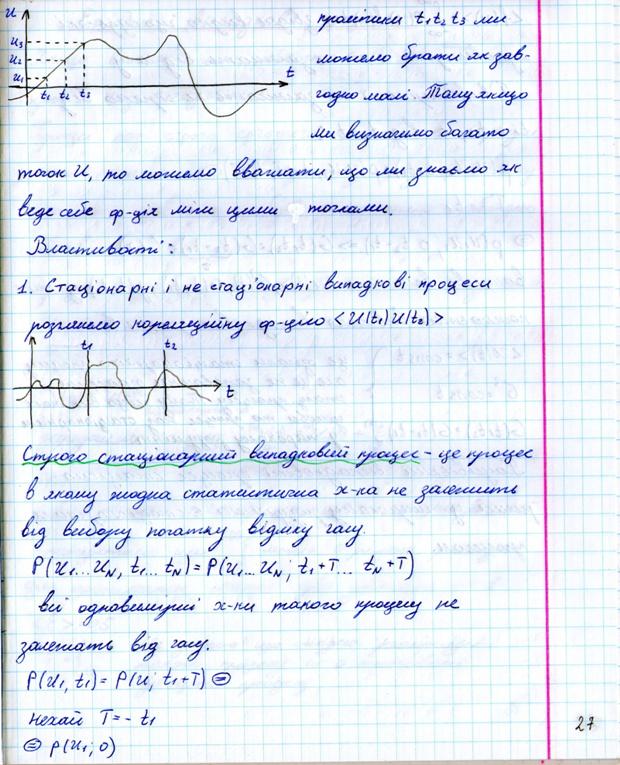 U
U₃
U₂
U₁
t₁ t₂ t₃
t
проміжки t₁ t₂ t₃ ми
можемо брати як зав-
годно малі. Тому якщо
ми визначимо багато
точок U, то можемо вважати, що ми знаємо як
веде себе ф-ція між цими точками.
Властивості:
1. Стаціонарні і не стаціонарні випадкові процеси
розглянемо кореляційну ф-цію <U(t₁)U(t₂)>
t₁ t₂
t
Строго стаціонарний випадковий процес - це процес
в якому жодна статистична х-ка не залежить
від вибору початку відліку часу.
P(U₁...U_N, t₁...t_N) = P(U₁...U_N; t₁+T...t_N+T)
всі одновимірні х-ки такого процесу не
залежать від часу.
P(U₁, t₁) = P(U; t₁+T) ⊜
нехай T = - t₁
⊜ p(U₁; 0)
27